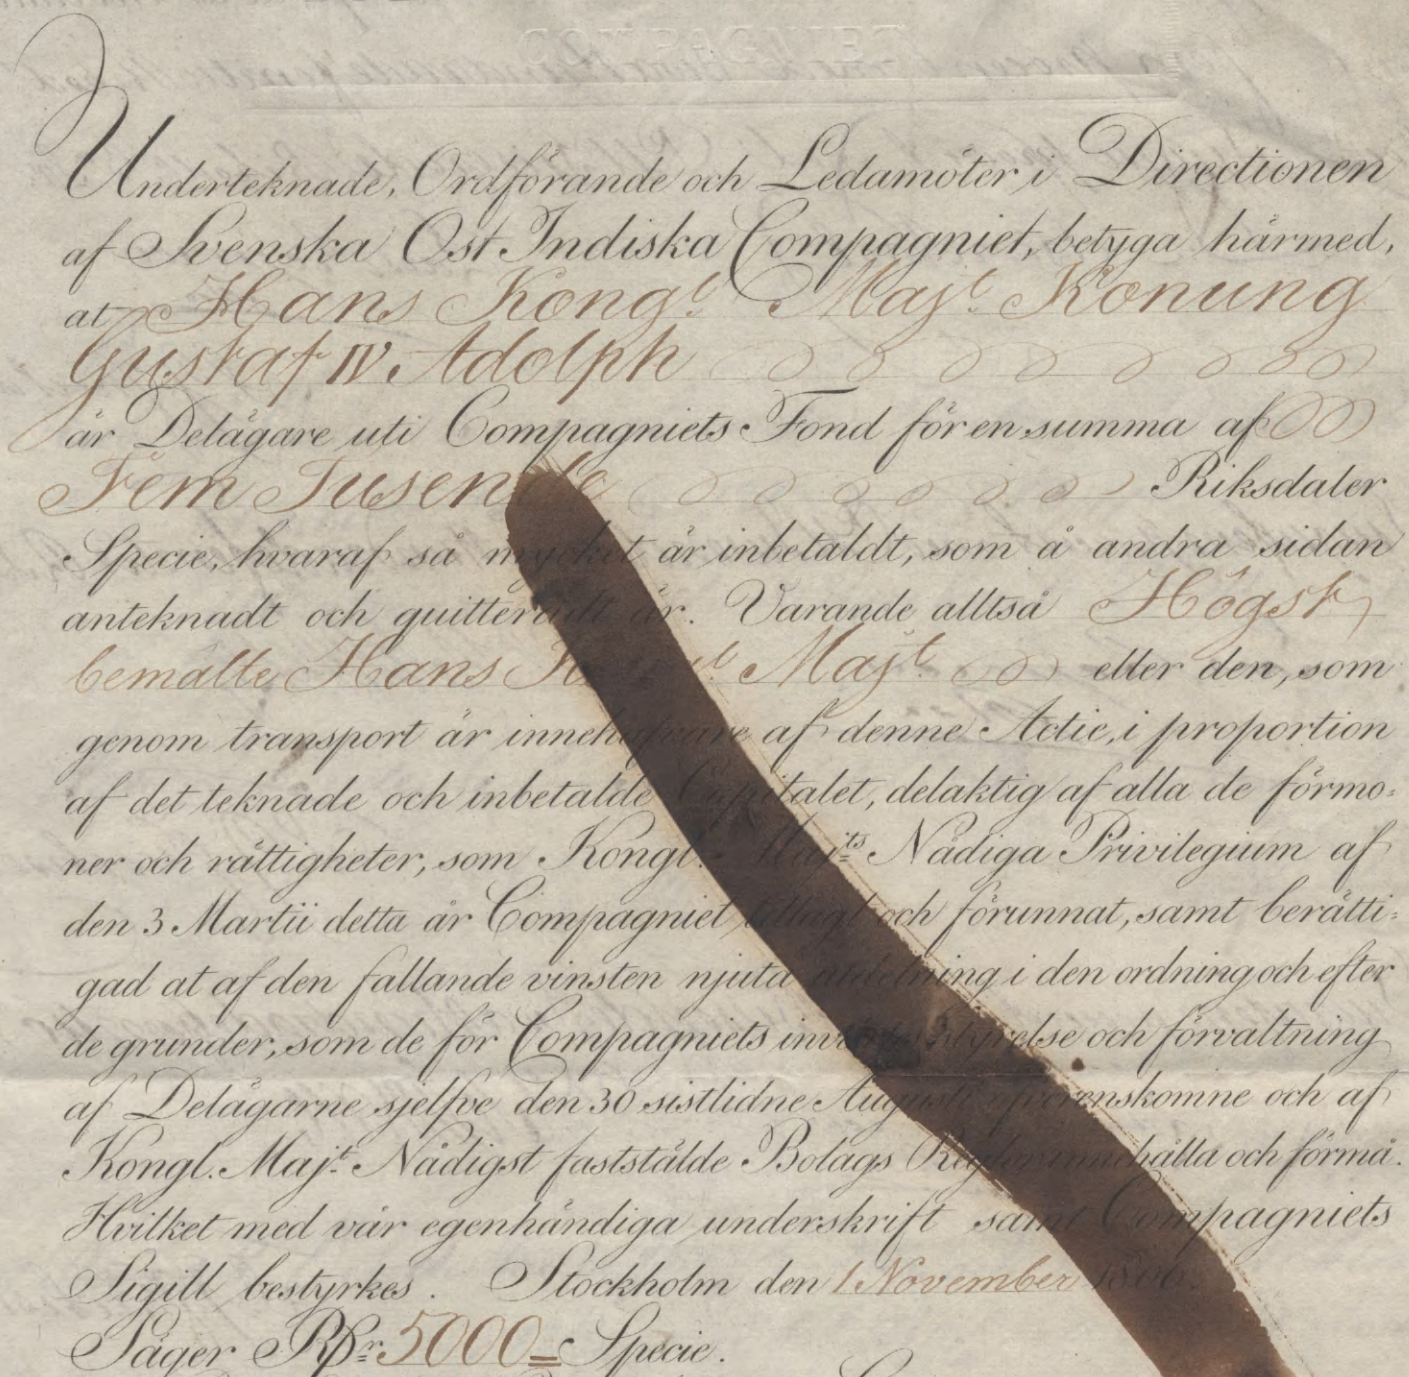 COMPAGNIET
Underteknade, Ordförande och Ledamöter i Directionen
af Svenska Ost Indiska Compagniet, betyga härmed,
at Hans Kongl. Majt. Konung
Gustaf IV Adolph
är Delägare uti Compagniets Fond för en summa af
Fem Tusende Riksdaler
Specie, hvaraf så mycket är inbetaldt, som å andra sidan
anteknadt och quitteradt är. Varande alltså Högst,
bemälte Hans Kongl. Majt. eller den, som
genom transport är innehafvare af denne Actie, i proportion
af det teknade och inbetalde Capitalet, delaktig af alla de förmo=
ner och rättigheter, som Kongl. Majts. Nådiga Privilegium af
den 3 Martii detta år Compagniet och förunnat, samt berätti=
gad at af den fallande vinsten njuta utdelning i den ordning och efter
de grunder, som de för Compagniets invärtes styrelse och förvaltning
af Delägarne sjelfve den 30 sistlidne Augusti öfverenskomne och af
Kongl. Majt. Nådigst fastställde Bolags Reglor innehålla och förmå.
Hvilket med vår egenhändiga underskrift samt Compagniets
Sigill bestyrkes. Stockholm den 1 November 1806.
Säger Rdr. 5000 = Specie.